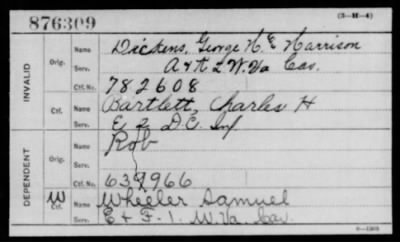 876309 (3-M-4)
INVALID
Orig. Name Dickens, George H. & Harrison
Serv. A & K 2 W. Va Cav.
Ctf. No. 782608
Ctf. Name Bartlett, Charles H
Serv. E 2 D.C. Inf
DEPENDENT
Orig. Name Rob
Serv.
Ctf. No. 639966
W Ctf. Name Wheeler Samuel
Serv. E & F. 1. W. Va. Cav.